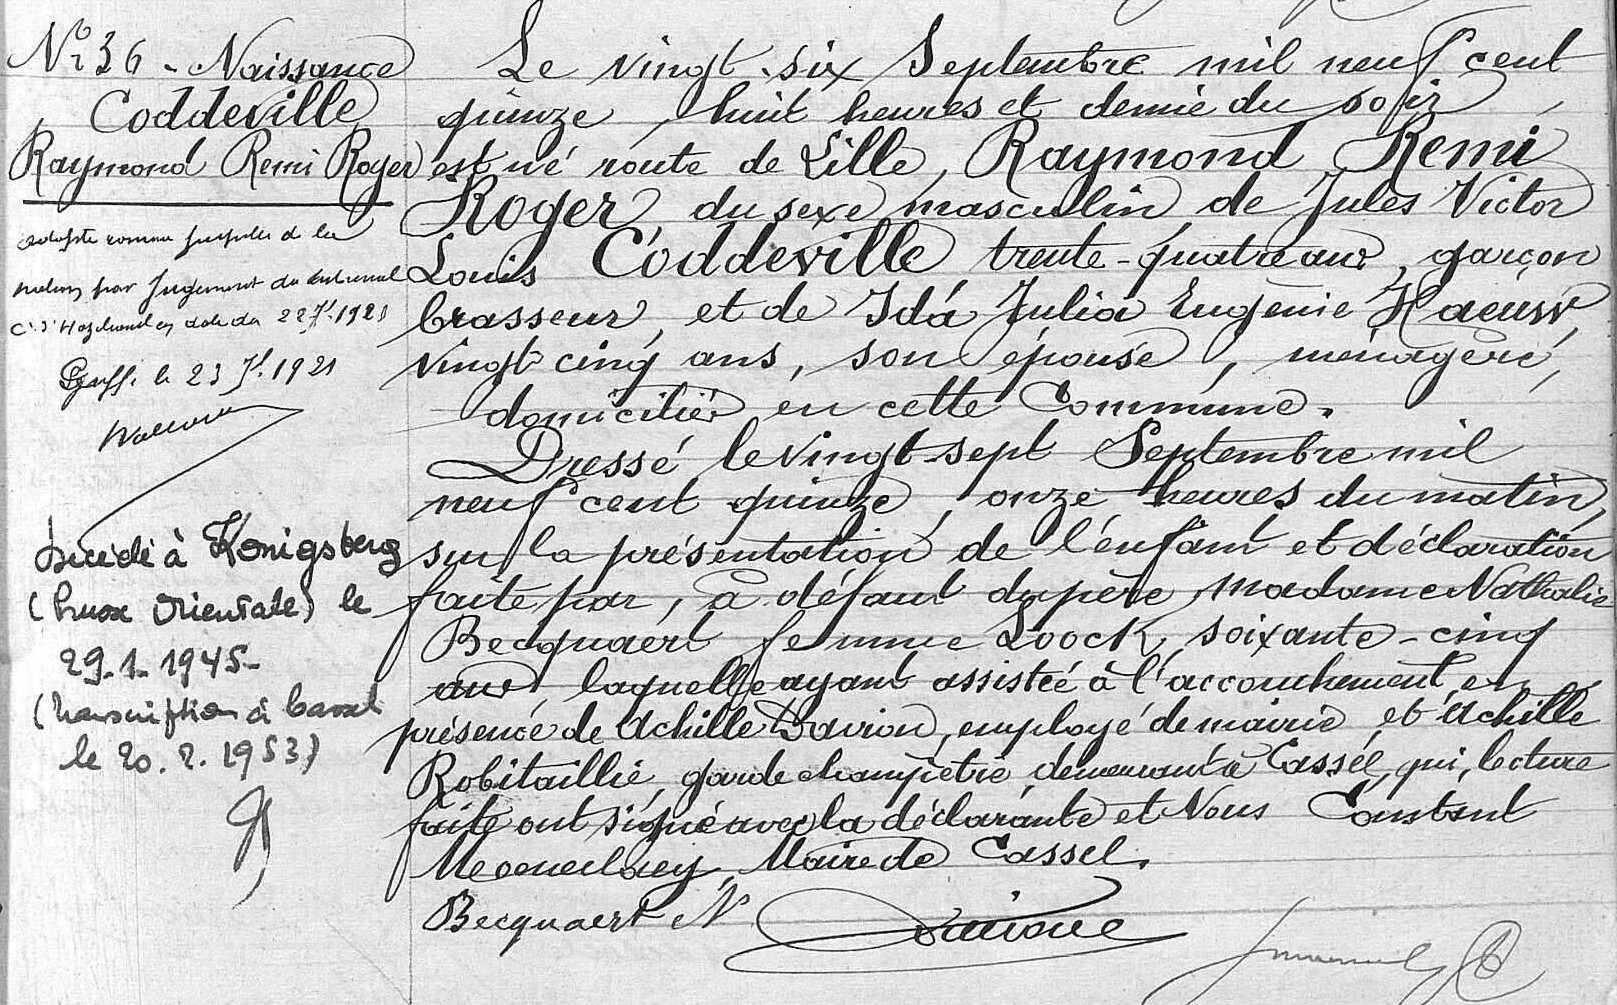 Nº 36 - Naissance
Coddeville
Raymond Remi Roger
adopté comme pupille de la
nation par Jugement du tribunal
C.l d'Hazebrouck en date du 22 Jt. 1921
le 23 Jt. 1921
Décédé à Konigsberg
(Prusse Orientale) le
29-1-1945-
(transcription à Cassel
le 20.2.1953)
Le vingt-six Septembre mil neuf cent
quinze, huit heures et demie du soir,
est né route de Lille, Raymond Remi
Roger, du sexe masculin, de Jules Victor
Louis Coddeville trente-quatre ans, garçon
brasseur, et de Ida Julia Eugénie
vingt cinq ans, son épouse, ménagère,
domiciliés en cette Commune.
Dressé le vingt-sept Septembre mil
neuf cent quinze, onze heures du matin,
sur la présentation de l'enfant et déclaration
faite par, à défaut du père, Madame Nathalie
Becquaert femme Loock, soixante-cinq
ans laquelle ayant assistée à l'accouchement, en
présence de Achille Davion, employé de mairie, et Achille
Robitaillie, garde champêtre demeurant à Cassel, qui, lecture
faite ont signé avec la déclarante et Nous Constant
Moeneclaey, Maire de Cassel.
Becquaert N